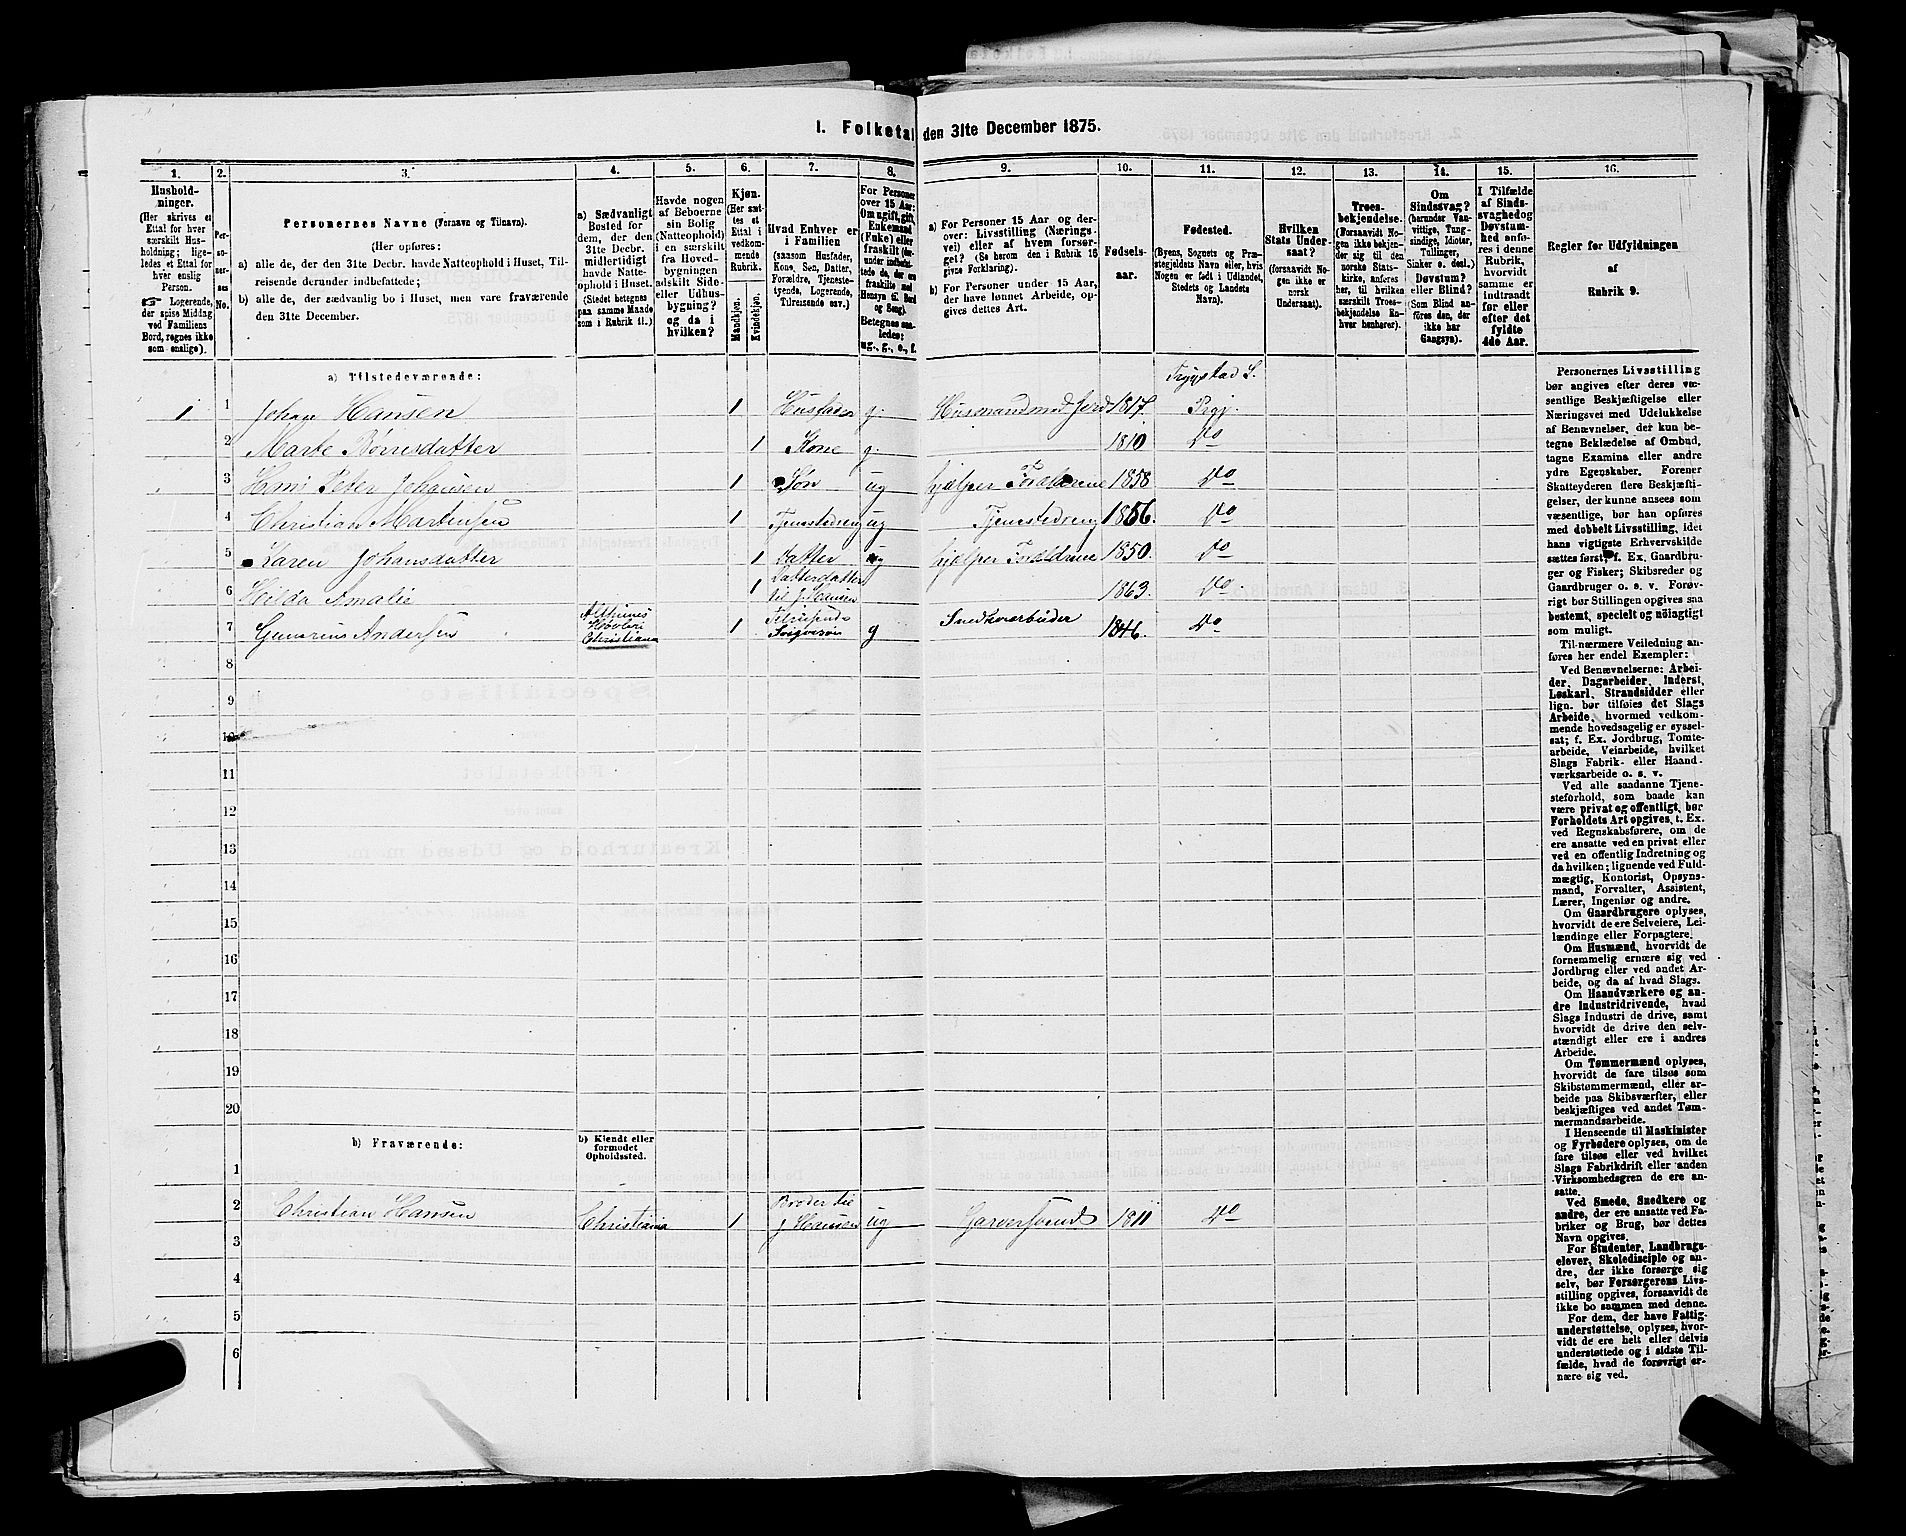 1. Folketal den 31te December 1875.
1.
2.
3.
4.
5.
6.
7.
8.
9.
10.
11.
12.
13.
14.
15.
16.
Hushold-
ninger.
(Her skrives et
Ettal for hver
særskilt Hus-
holdning; lige-
ledes et Ettal for
hver enslig
Person.
☞ Logerende,
der spise Middag
ved Familiens
Bord, regnes ikke
som enslige).
Per-
so-
ner-
nes
No.
Personernes Navne (Fornavn og Tilnavn).
(Her opføres:
a) alle de, der den 31te Decbr. havde Natteophold i Huset, Til-
reisende derunder indbefattede;
b) alle de, der sædvanlig bo i Huset, men vare fraværende
den 31te December.
a) Sædvanligt
Bosted for
dem, der den
31te Decbr.
midlertidigt
havde Natte-
ophold i Huset.
(Stedet betegnes
paa samme Maade
som i Rubrik 11.)
Havde nogen
af Beboerne
sin Bolig
(Natteophold)
i en særskilt
fra Hoved-
bygningen
adskilt Side-
eller Udhus-
bygning?
og da i
hvilken?
Kjøn.
(Her sæt-
tes et
Ettal i
vedkom-
mende
Rubrik.
Mandkjøn.
Kvindekjøn.
Hvad Enhver er
i Familien
(saasom Husfader,
Kone, Søn, Datter,
Forældre, Tjeneste-
tyende, Logerende,
Tilreisende osv.)
For Personer
over 15 Aar:
Om ugift, gift,
Enkemand
(Enke) eller
fraskilt (her-
under indbefat-
tede de, der ere
fraskilte med
Hensyn til Bord
og Seng).
Betegnes saa-
ledes:
ug., g., e., f.
a) For Personer 15 Aar og der-
over: Livsstilling (Nærings-
vei) eller af hvem forsør-
get? (Se herom den i Rubrik 16
givne Forklaring).
b) For Personer under 15 Aar,
der have lønnet Arbeide, op-
gives dettes Art.
Fødsels-
aar.
Fødested.
(Byens, Sognets og Præ-
stegjeldets Navn eller, hvis
Nogen er født i Udlandet,
Stedets og Landets
Navn).
Hvilken
Stats Under-
saat?
(forsaavidt No-
gen ikke er
norsk
Undersaat).
Troes-
bekjendelse.
(Forsaavidt No-
gen ikke bekjen-
der sig til den
norske Stats-
kirke, anføres
her, til hvilken
særskilt Troes-
bekjendelse En-
hver henhører).
Om
Sindssvag?
(herunder Van-
vittige, Tung-
sindige, Idioter,
Tullinger,
Sinker o. desl.)
Døvstum?
eller Blind?
(Som Blind an-
føres den, der
ikke har
Gangsyn).
I Tilfælde
af Sinds-
svaghed og
Døvstum-
hed anføres
i denne
Rubrik,
hvorvidt
samme er
indtraadt
før eller
efter det
fyldte
4de Aar.
Regler før Udfyldningen
af
Rubrik 9.
a) Tilstedeværende:
Trygstad S.
1 1 Johan Hansen 1 Husfader g. Husmand med Jord 1817. Prgj.
2 Marte Børresdatter 1 Kone g. 1810 Do
3 Hans Peter Johansen 1 Søn ug hjælper Forældrene 1858 Do
4 Christian Martinsen 1 Tjenestedreng ug Tjenestedreng 1856. Do
5 Karen Johansdatter 1 Datter ug hjælper Forældrene 1850. Do
Datterdatter
6 Hilda Amalie 1 til J. Hansen 1863. Do
Høvleri
7 Gunerius Andersen Christiania 1 Svigersøn g Snedkerarbeider 1846. Do
8
9
10
11
12
13
14
15
16
17
18
19
20
b) Fraværende:
b) Kjendt eller
formodet
Opholdssted.
1
Broder til
2 Christian Hansen Christiania 1 J Hansen ug Garversvend 1811 Do
3
4
5
6
Personernes Livsstilling
bør angives efter deres væ-
sentlige Beskjæftigelse eller
Næringsvei med Udelukkelse
af Benævnelser, der kun be-
tegne Beklædelse af Ombud,
tagne Examina eller andre
ydre Egenskaber. Forener
Skatteyderen flere Beskjæfti-
gelser, der kunne ansees som
væsentlige, bør han opføres
med dobbelt Livsstilling, idet
hans vigtigste Erhvervskilde
sættes først; f. Ex. Gaardbru-
ger og Fisker; Skibsreder og
Gaardbruger o. s. v. Forøv-
rigt bør Stillingen opgives saa
bestemt, specielt og nøiagtigt
som muligt.
Til nærmere Veiledning an-
føres her endel Exempler:
Ved Benævnelserne: Arbei-
der, Dagarbeider, Inderst,
Løskarl, Strandsidder eller
lign. bør tilføies det Slags
Arbeide, hvormed vedkom-
mende hovedsagelig er syssel-
sat; f. Ex. Jordbrug, Tomte-
arbeide, Veiarbeide, hvilket
Slags Fabrik- eller Haand-
værksarbeide o. s. v.
Ved alle saadanne Tjene-
steforhold, som baade kan
være privat og offentligt, bør
Forholdets Art opgives, t. Ex.
ved Regnskabsførere, om de
ere ansatte ved en privat eller
ved en offentlig Indretning og
da hvilken; lignende ved Fuld-
mægtig, Kontorist, Opsyns-
mand, Forvalter, Assistent,
Lærer, Ingeniør og andre.
Om Gaardbrugere oplyses,
hvorvidt de ere Selveiere, Lei-
lændinge eller Forpagtere.
Om Husmænd, hvorvidt de
fornemmelig ernære sig ved
Jordbrug eller ved andet Ar-
beide, og da af hvad Slags.
Om Haandværkere og an-
dre Industridrivende, hvad
Slags Industri de drive, samt
hvorvidt de drive den selv-
stændigt eller ere i andres
Arbeide.
Om Tømmermænd oplyses,
hvorvidt de fare tilsøs som
Skibstømmermænd, eller ar-
beide paa Skibsværfter, eller
beskjæftiges ved andet Tøm-
mermandsarbeide.
I Henseende til Maskinister
og Fyrbødere oplyses, om de
fare tilsøs eller ved hvilket
Slags Fabrikdrift eller anden
Virksomhedsgren de ere an-
satte.
Ved Smede, Snedkere og
andre, der ere ansatte ved Fa-
briker og Brug, bør dettes
Navn opgives.
For Studenter, Landbrugs-
elever, Skoledisciple og an-
dre, der ikke forsørge sig
selv, bør Forsørgerens Livs-
stilling opgives, forsaavidt de
ikke bo sammen med denne.
For dem, der have Fattig-
understøttelse, oplyses, hvor-
vidt de ere helt eller delvis
understøttede og i sidste Til-
fælde, hvad de forøvrigt er-
nære sig ved.